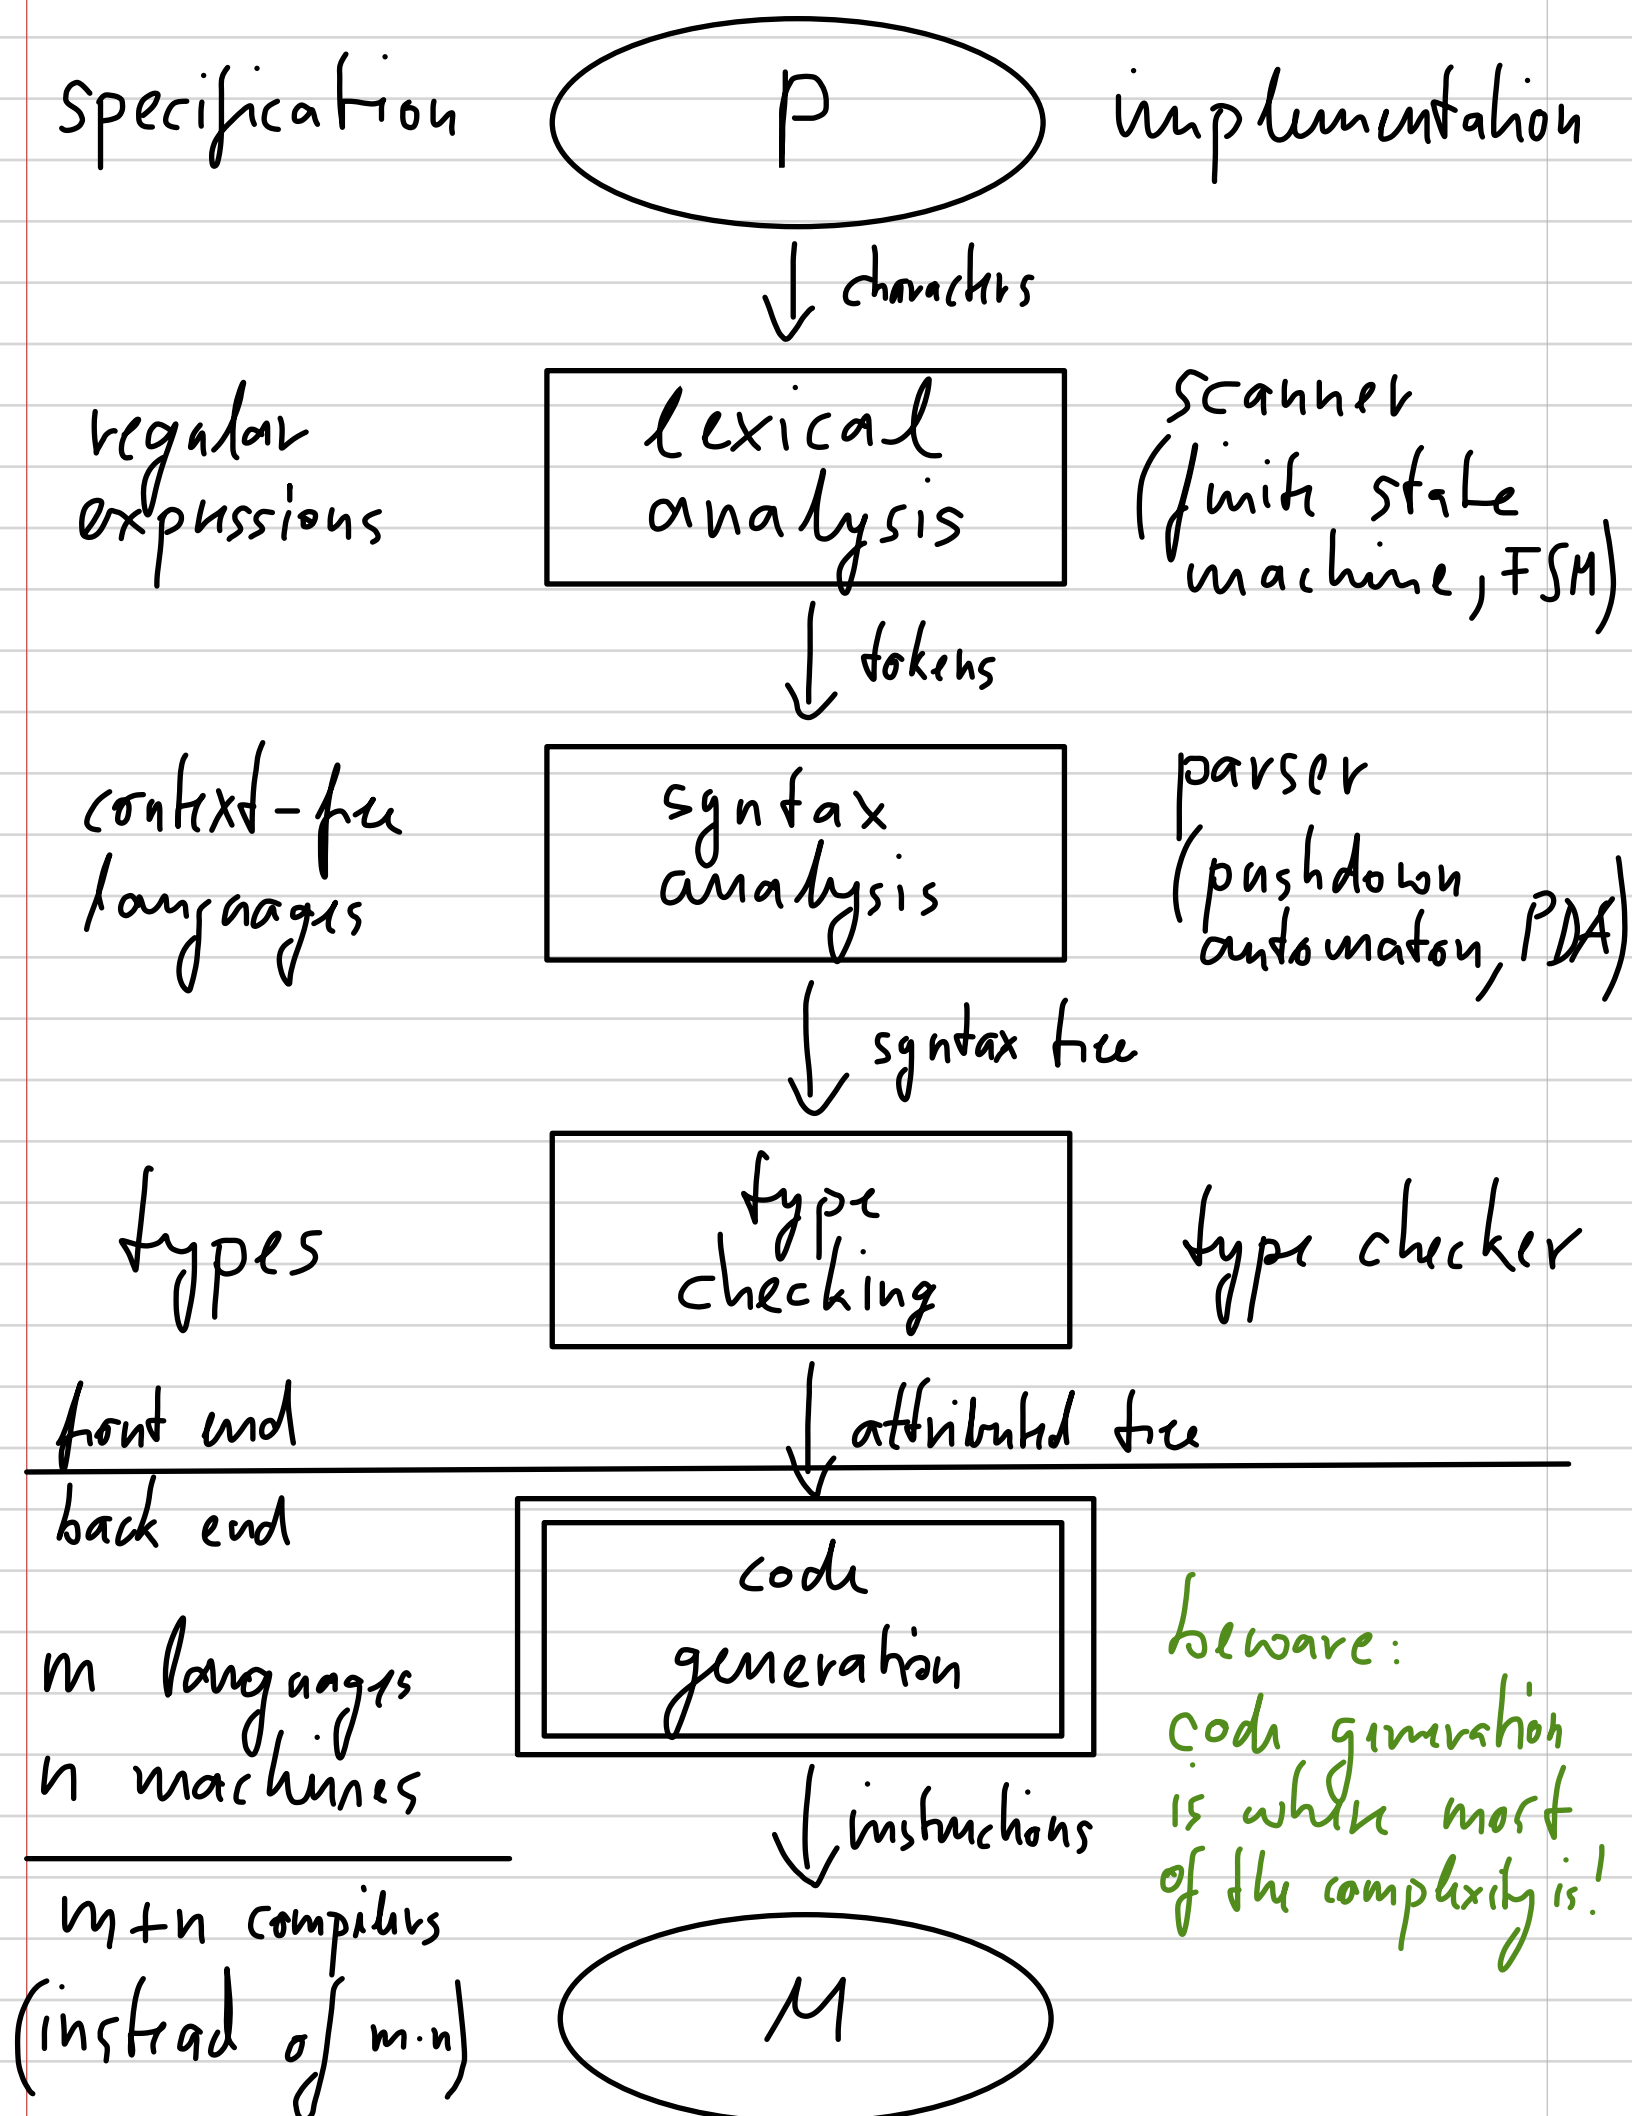 specification
P
implementation
characters
regular
expressions
lexical
analysis
scanner
(finite state
machine, FSM)
tokens
context-free
languages
syntax
analysis
parser
(pushdown
automaton, PDA)
syntax tree
types
type
checking
type checker
front end
attributed tree
back end
code
generation
m languages
n machines
beware:
code generation
is where most
of the complexity is!
instructions
m+n compilers
(instead of m·n)
M